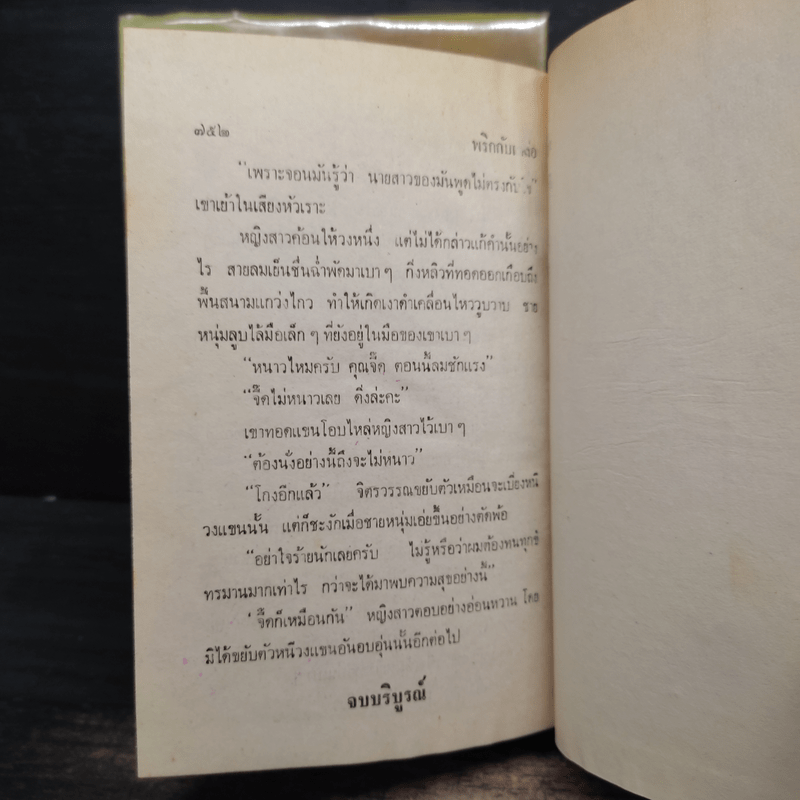 ๗๕๒
พริกกับเกลือ
“เพราะจอนมันรู้ว่า นายสาวของมันพูดไม่ตรงกับใจ”
เขาเย้าในเสียงหัวเราะ
หญิงสาวค้อนให้วงหนึ่ง แต่ไม่ได้กล่าวแก้คำนั้นอย่าง
ไร สายลมเย็นชื่นฉ่ำพัดมาเบา ๆ กิ่งหลิวที่ทอดออกเกือบถึง
พื้นสนามแกว่งไกว ทำให้เกิดเงาดำเคลื่อนไหววูบวาบ ชาย
หนุ่มลูบไล้มือเล็ก ๆ ที่ยังอยู่ในมือของเขาเบา ๆ
“หนาวไหมครับ คุณจี๊ด ตอนนี้ลมชักแรง”
“จี๊ดไม่หนาวเลย ดิ่งล่ะคะ”
เขาทอดแขนโอบไหล่หญิงสาวไว้เบา ๆ
“ต้องนั่งอย่างนี้ถึงจะไม่หนาว”
“โกงอีกแล้ว” จิตรวรรณขยับตัวเหมือนจะเบี่ยงหนี
วงแขนนั้น แต่ก็ชะงักเมื่อชายหนุ่มเอ่ยขึ้นอย่างตัดพ้อ
“อย่าใจร้ายนักเลยครับ ไม่รู้หรือว่าผมต้องทนทุกข์
ทรมานมากเท่าไร กว่าจะได้มาพบความสุขอย่างนี้”
“จี๊ดก็เหมือนกัน” หญิงสาวตอบอย่างอ่อนหวาน โดย
มิได้ขยับตัวหนีวงแขนอันอบอุ่นนั้นอีกต่อไป
จบบริบูรณ์